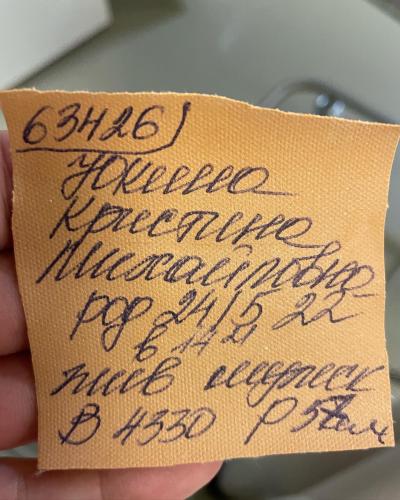 63426
Юкина
Кристина
Михайловна
род 24/5 22
в 14 21
жив
В 4330 Р 57см